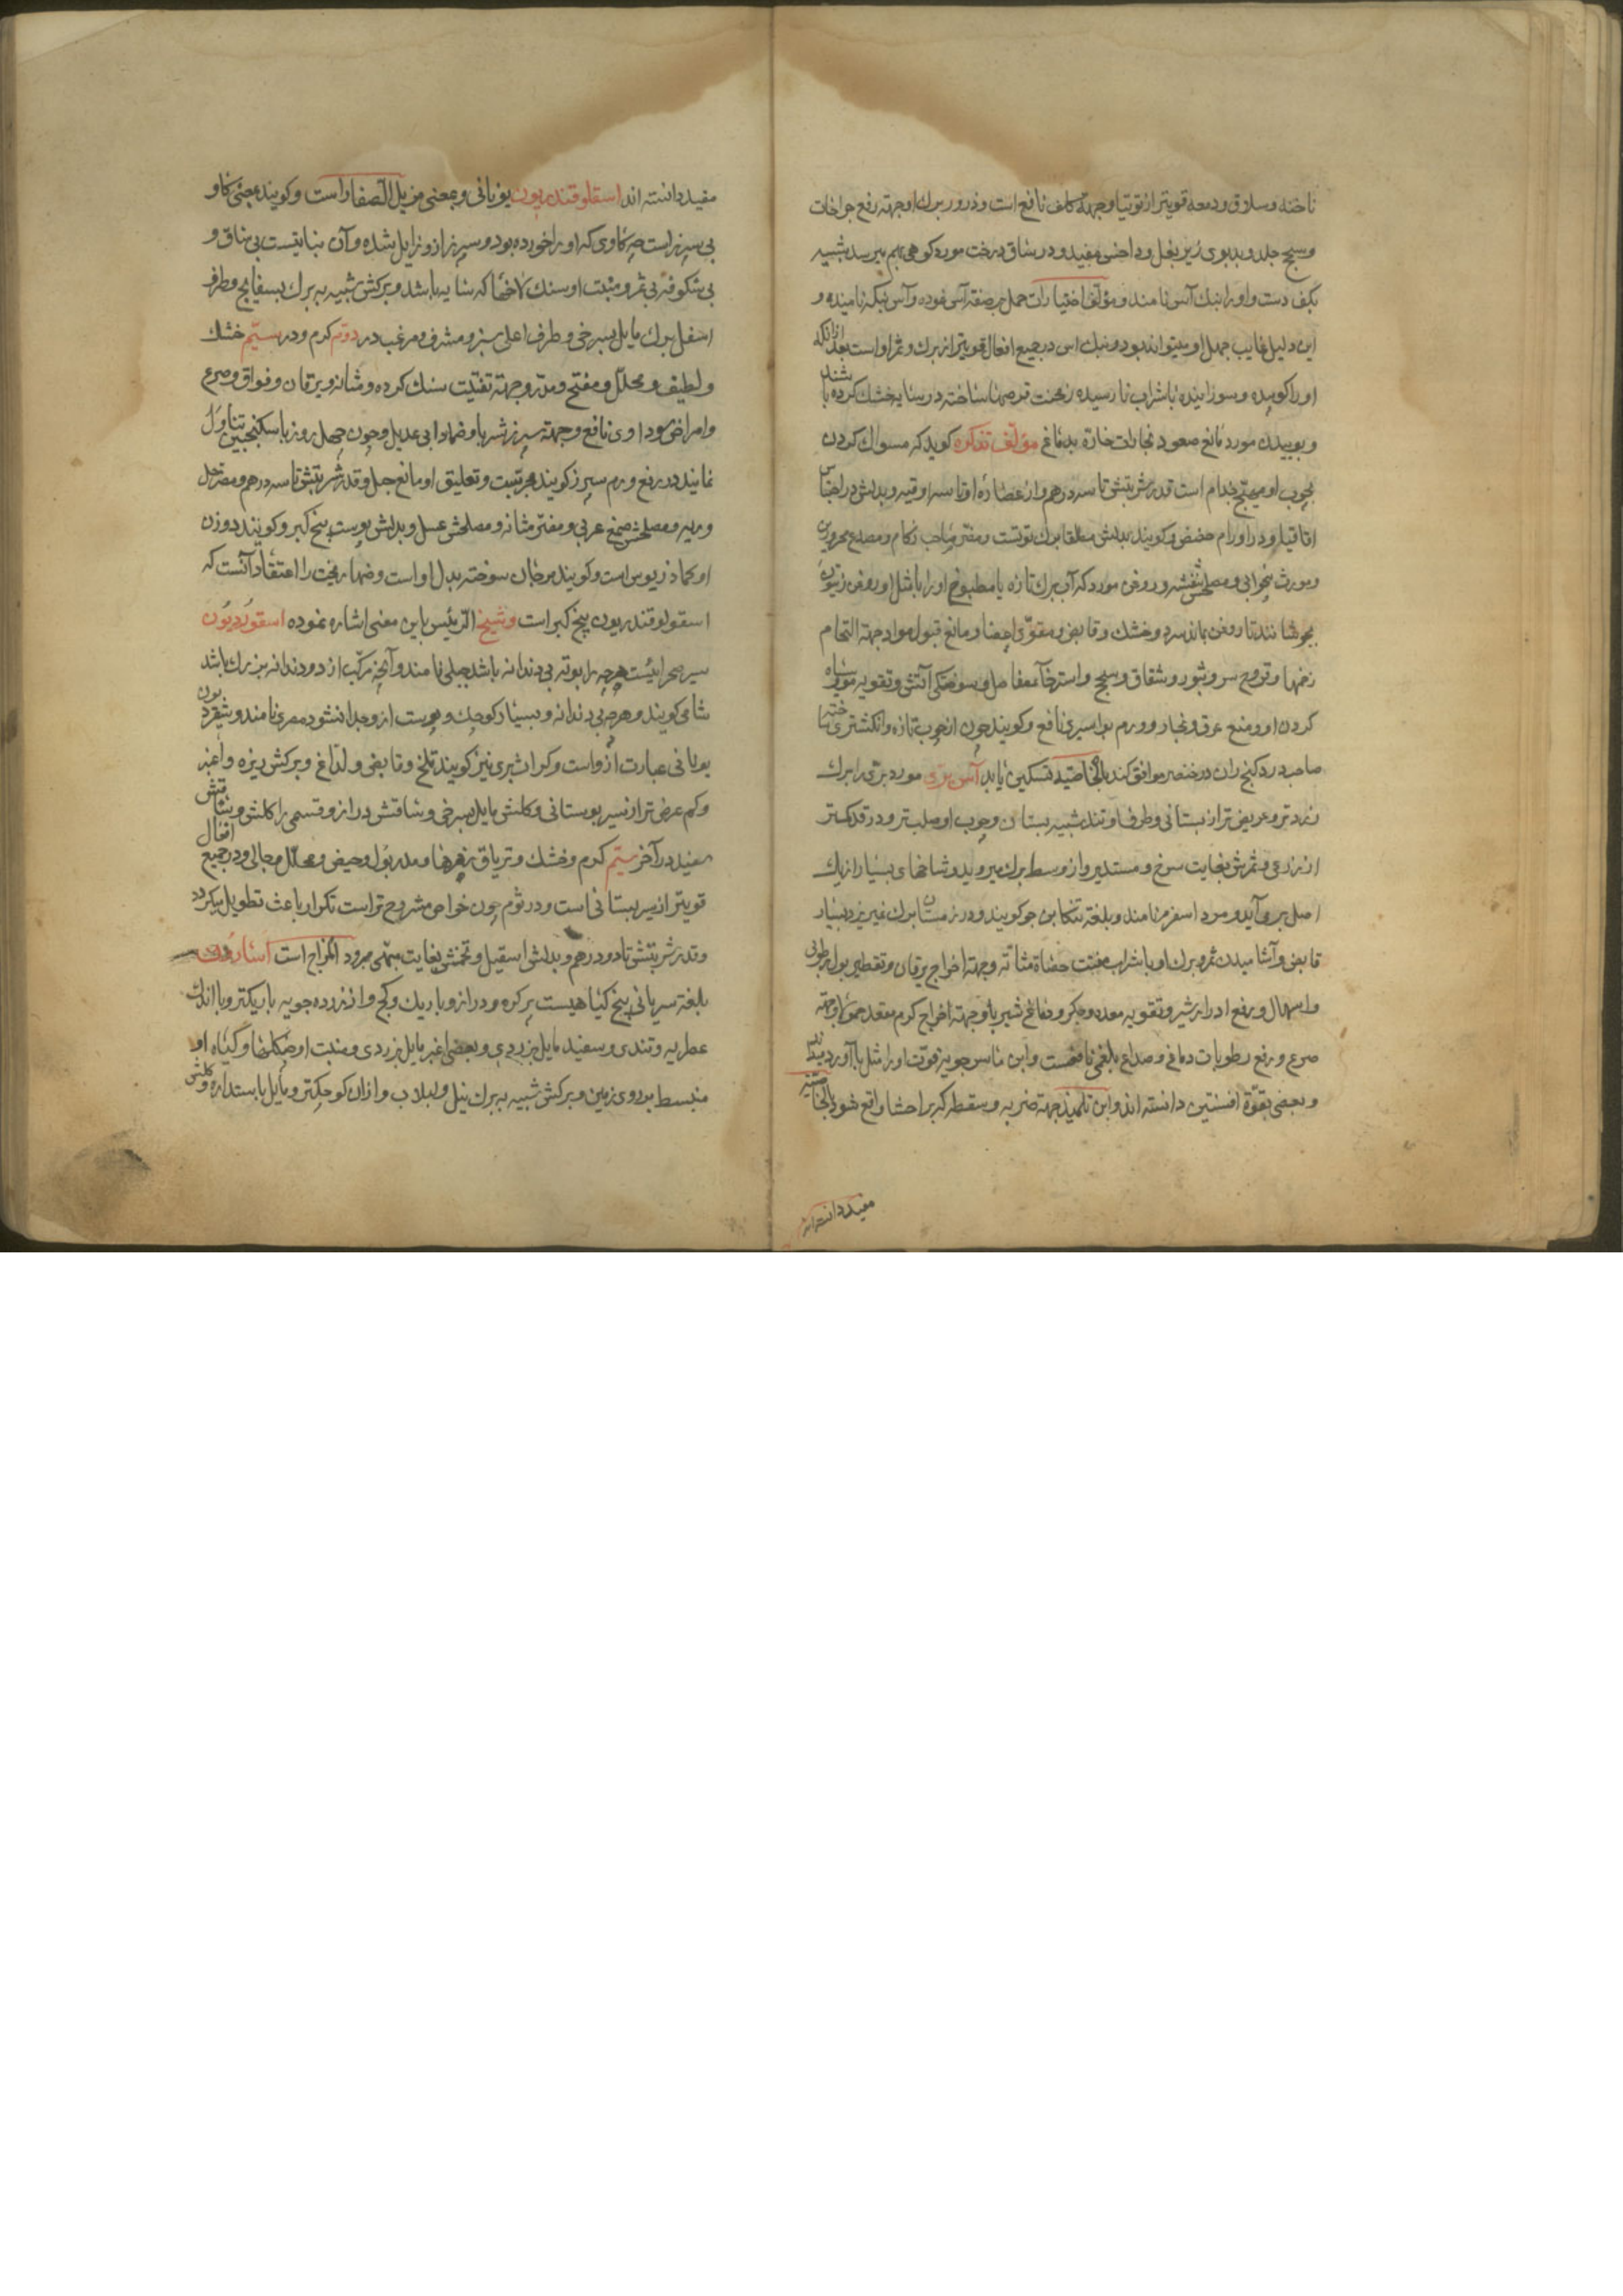 ناخنه و سلاق و دمعه قویتر از توتیا و جهته کلف نافع است و ذرور برك او جهته رفع جراحات
و سحج جلد و بدبوی زیر بغل و داحس مفید و در ساق درخت مورد کوهی بهم میرسد شبیه
بکف دست و او را بنك آس نامند و مؤلف اختیارات حمل بر صفة آس نموده و آس بنکه نامیده و
این دلیل غایب جهل او میتواند بود و بنك آس در جمیع افعال قویتر از برك و ثمر او است بعد از آنکه
او را کوبیده و سوزانیده با شراب نارسیده زمخت قرصها ساخته در سایه خشك کرده باشند
و بوییدن مورد مانع صعود بخارات حاره بدماغ مؤلف تذکره کوید که مسواك کردن
بچوب او مهیج جذام است قدر شربتش تا سه درهم و از عصاره او تا سه اوقیه و بدلش در احتباس
اقاقیا و در اورام حضض و کویند بدلش مطلقا برك توتست و مضر صاحب زکام و مصدع محرورین
و مورث بیخوابی و مصلحش بنفشه و روغن مورد که آب برك تازه یا مطبوخ او را با مثل او روغن زیتون
بجوشانند تا روغن بماند سرد و خشك و قابض و مقوی اعضا و مانع قبول مواد جهته التحام
زخمها و قروح سر و بثور و شقاق و سحج و استرخآء مفاصل و سوختکی آتش و تقویه مو و سیاه
کردن او و منع عرق و بخار و ورم بواسیری نافع و کویند چون از چوب تازه او انکشتری ساخته
صاحب درد کنج ران در خنصر موافق کند بالخاصیه تسکین یابد آس بری مورد بری را برك
زردتر و عریض تر از بستانی و طرف او تند شبیه بسنان و چوب او صلب تر و در قد کمتر
از زرعی و ثمرش بغایت سرخ و مستدیر و از وسط برك میروید و شاخهای بسیار از یك
اصل برمی‌آید و مورد اسفرم نامند و بلغة تنکابن جو کویند و در زمستان برك غیریزد بسیار
قابض و آشامیدن ثمر و برك او با شراب مفتت حصاة مثانه و جهته اخراج یرقان و تقطیر بول رطوبی
و اسهال و رفع ادرار شیر و تقویه معده و جکر و دماغ شیرباً و جهته اخراج کرم مقعد حمولا و جهته
صرع و رفع رطوبات دماغی و صداع بلغمی نافعست و ابن ماسرجویه قوت او را مثل باآورد میداند
و بعضی بقوة افسنتین دانسته اند و ابن تلمیذ جهته ضربه و سقطه که بر احشا واقع شود بالخاصیه
مفید دانسته اند
مفید دانسته اند اسقلوقندریون یونانی و بمعنی مزیل الصفار است و کویند بمعنی کاو
بی سپرز است چه کاوی که او را خورده بود و سپرز از و زایل شده و آن نباتیست بی ساق و
بی شکوفه بی ثمر و منبت او سنك لاخها که سایه باشد و برکش شبیه به برك بسفایج و طرف
اسفل برك مایل بسرخی و طرف اعلی سبز و مشرف و مزغب در دوم کرم و در سیم خشك
و لطیف و محلل و مفتح و مدر و جهته تفتیت سنك کرده و مثانه و یرقان و فواق و صرع
و امراض سوداوی نافع و جهته سپرز شربا و ضمادا بی عدیل و چون چهل روز با سکنجبین تناول
نمایند در رفع ورم سپرز کویند مجربست و تعلیق او مانع حمل و قدر شربتش تا سه درهم و مضر جکر
و ریه و مصلحش صمغ عربی و مضر مثانه و مصلحش عسل و بدلش پوست بیخ کبر و کویند دوزن
او کماذریوس است و کویند مرجان سوخته بدل او است و ضماد مجت را اعتقاد آنست که
اسقولوقندریون بیخ کبر است و شیخ الرئیس باین معنی اشاره نموده اسقوردیون
سیر صحرائیست هرچه را بوته بی دندانه باشد جبلی نامند و آنچه مرکب از دو دندانه بزرك باشد
شامی کویند و هرچه بی دندانه و بسیار کوچك و پوست از و جدا نشود مصری نامند و شقردیون
یونانی عبارت از و است و کراث بری نیز کویند تلخ و قابض و لذاع و برکش ریزه و اغبر
و کم عرض تر از سیر بوستانی و کلش مایل بسرخی و ساقش دراز و قسمی را کلش و ساقش
سفید در آخر سیم کرم و خشك و تریاق زهرها و مدر بول و حیض و محلل و جالی و در جمیع افعال
قویتر از سیر بستانی است و در ثوم چون خواص مشروح تر است تکرار باعث تطویل میکردد
و قدر شربتش تا دو درهم و بدلش اسقیل و تخمش بغایت مبهی مبرود المزاج است اسارون
بلغة سریانی بیخ کیاهیست پر کره و دراز و باریك و کج و از زرده جوبه باریکتر و با اندك
عطریه و تندی و سفید مایل بزردی و بعضی اغبر مایل بزردی و منبت او جنکلها و کیاه او
منبسط بر روی زمین و برکش شبیه به برك نیل و لبلاب و از آن کوچکتر و مایل باستداره و کلش